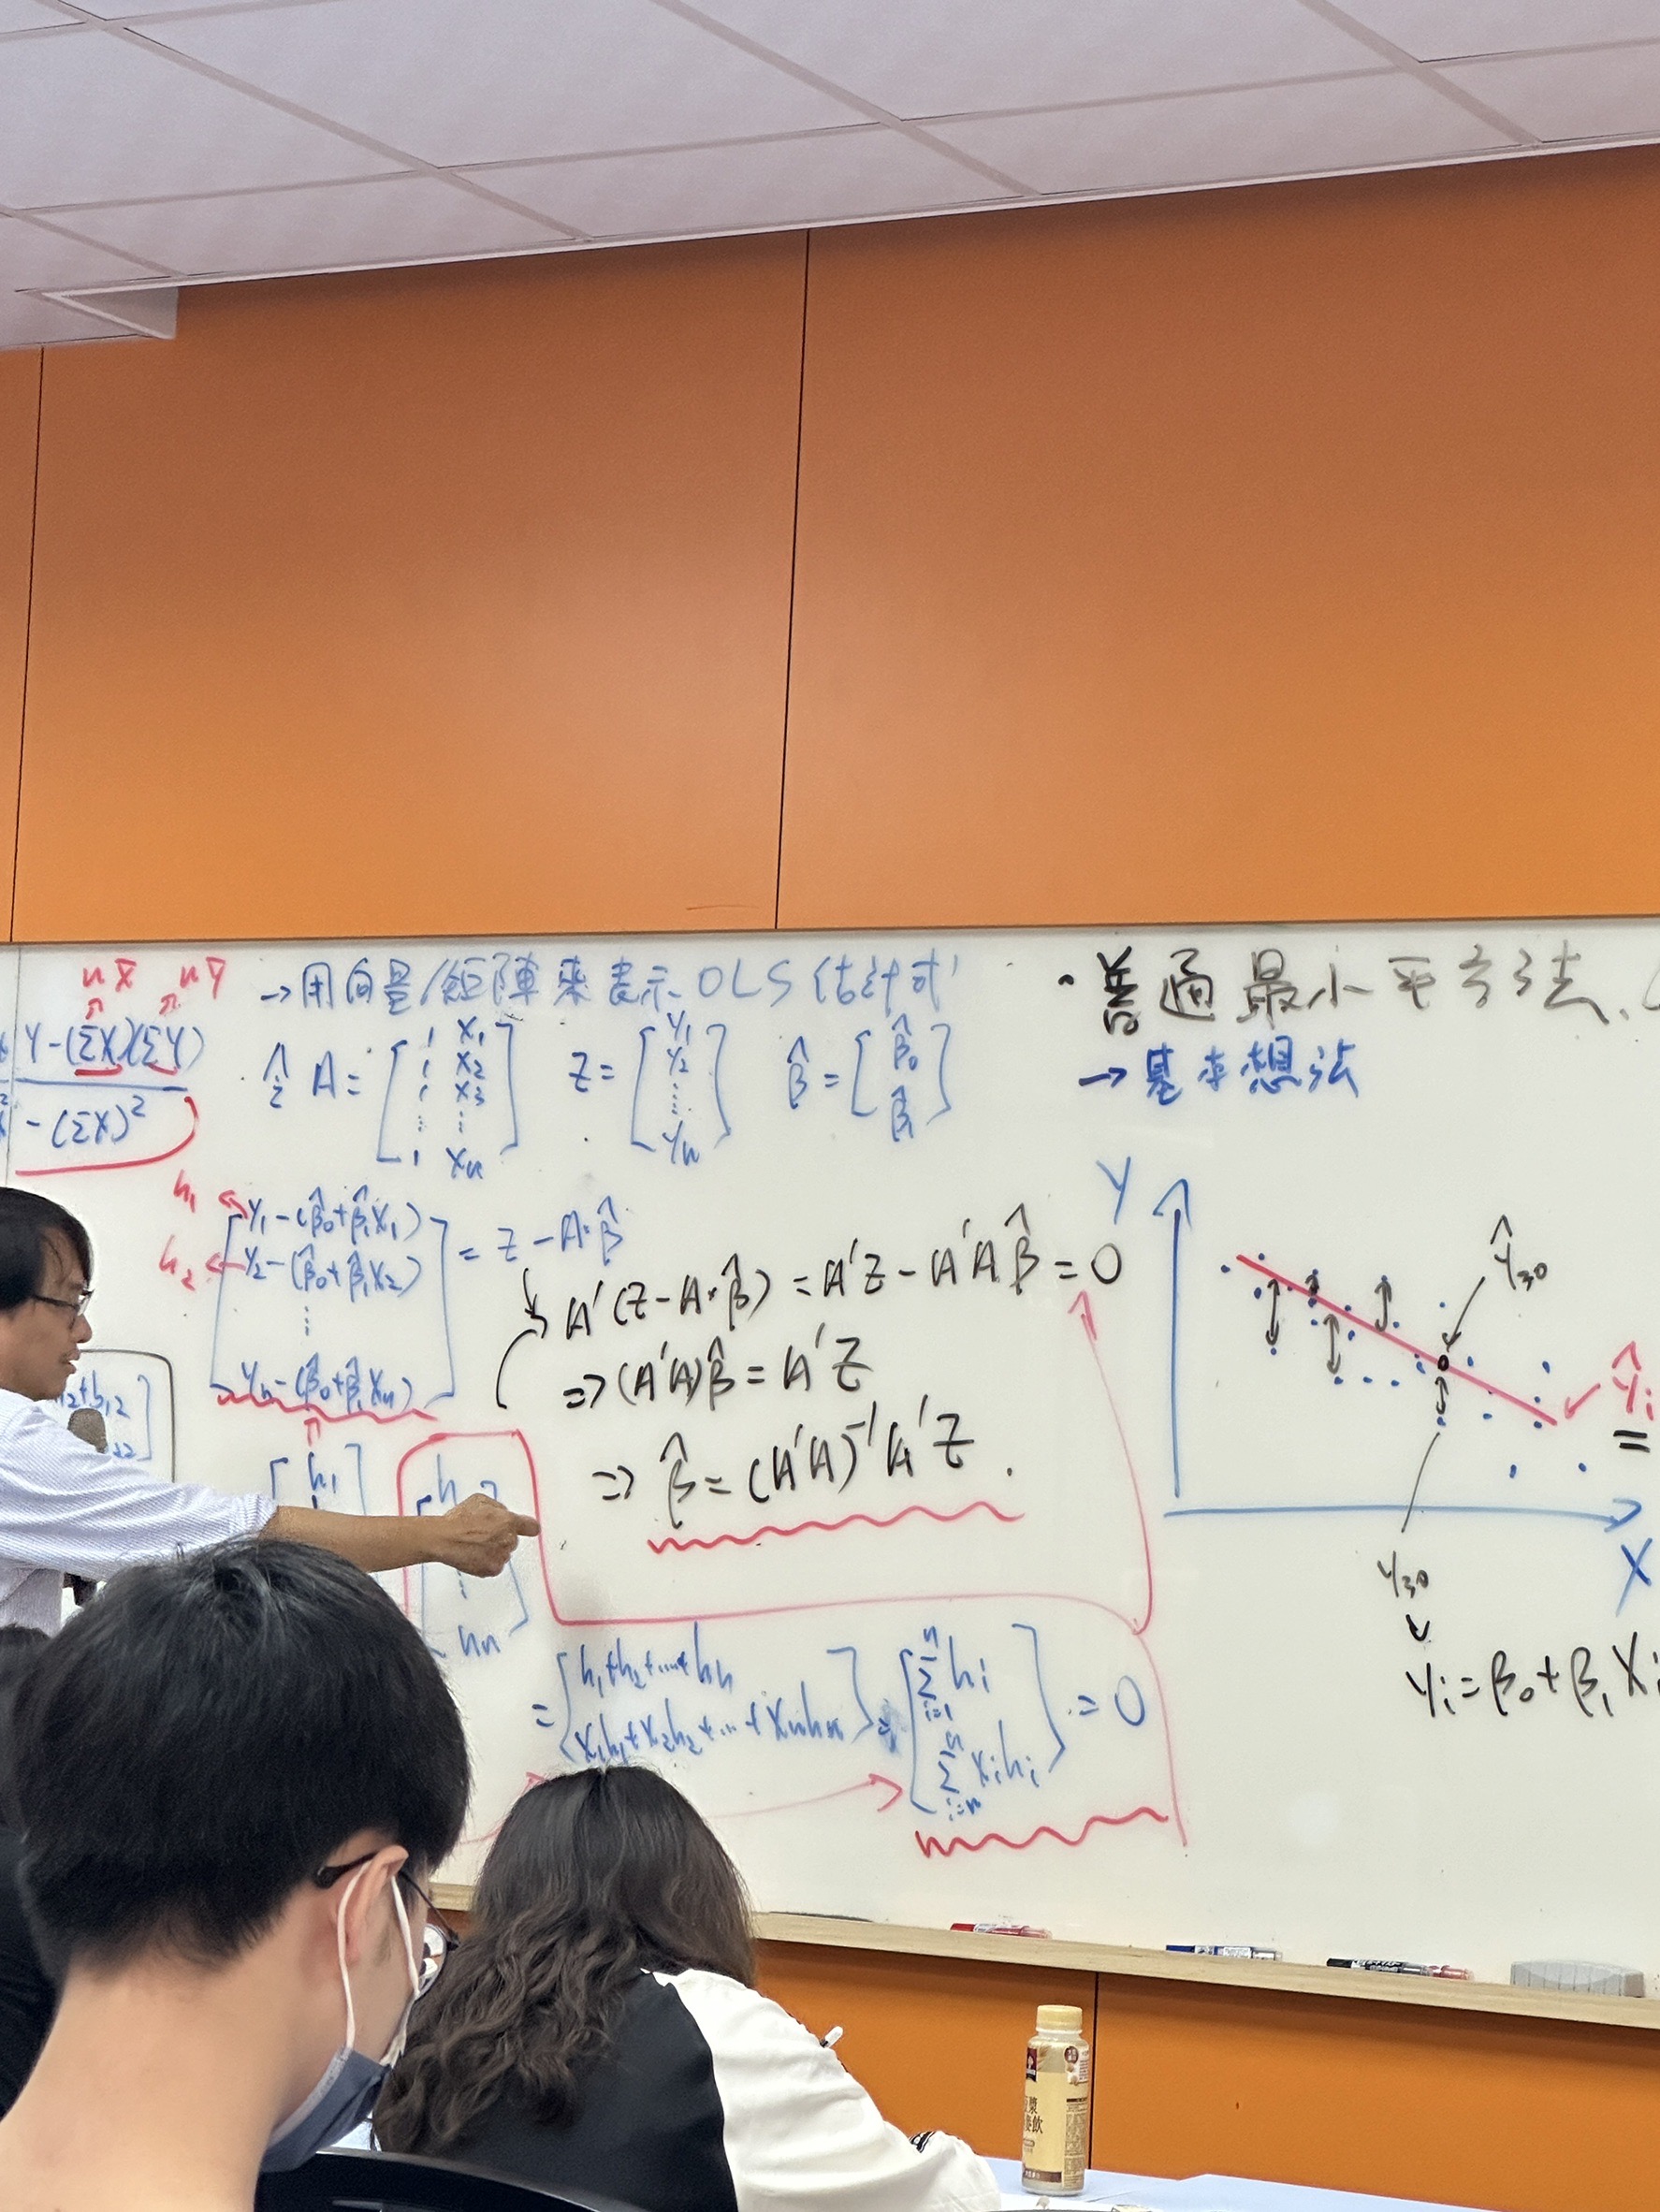 nX̄ nȲ
Y-(ΣX)(ΣY)
-(ΣX)²
→用向量/矩陣來表示OLS估計式
令 A = [1 X₁ 1 X₂ 1 X₃ ⋮ ⋮ 1 Xₙ] Z = [Y₁ Y₂ ⋮ Yₙ] β̂ = [β̂₀ β̂₁]
h₁ ← Y₁-(β̂₀+β̂₁X₁)
h₂ ← Y₂-(β̂₀+β̂₁X₂)
⋮
Yₙ-(β̂₀+β̂₁Xₙ)
= Z - A·β̂
A'(Z-A·β̂) = A'Z - A'Aβ̂ = 0
⇒ (A'A)β̂ = A'Z
⇒ β̂ = (A'A)⁻¹A'Z.
h₁
h
⋮
hn
= [h₁+h₂+⋯+hn
X₁h₁+X₂h₂+⋯+Xnhn]
= [Σⁿᵢ₌₁ hᵢ
Σⁿᵢ₌ₙ Xᵢhᵢ] = 0
·普通最小平方法.
→基本想法
Y
Ŷ₃₀
Ŷᵢ
=
X
Y₃₀
↓
Yᵢ=β₀+β₁Xᵢ